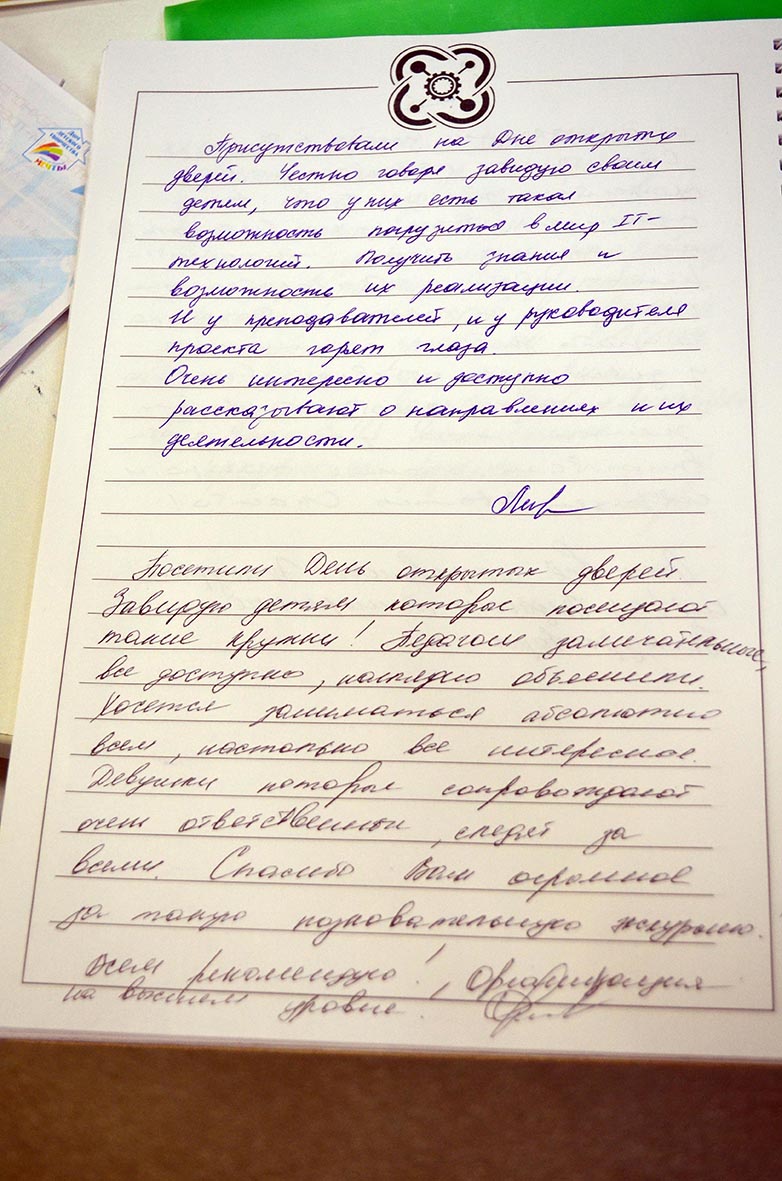 Дом
детского
творчества
МЕЧТЫ
Присутствовали на Дне открытых
дверей. Честно говоря завидую своим
детям, что у них есть такая
возможность погрузиться в мир IT-
технологий. Получить знания и
возможность их реализации.
И у преподавателей, и у руководителя
проекта горят глаза.
Очень интересно и доступно
рассказывают о направлениях и их
деятельности.
Посетили День открытых дверей.
Завидую детям которые посещают
такие кружки! Педагоги замечательные,
все доступно, наглядно объяснили.
Хочется заниматься абсолютно
всем, настолько все интересное.
Девушки которые сопровождают
очень ответственны, следят за
всеми. Спасибо Вам огромное
за такую познавательную экскурсию.
Всем рекомендую!, Организация
на высшем уровне.